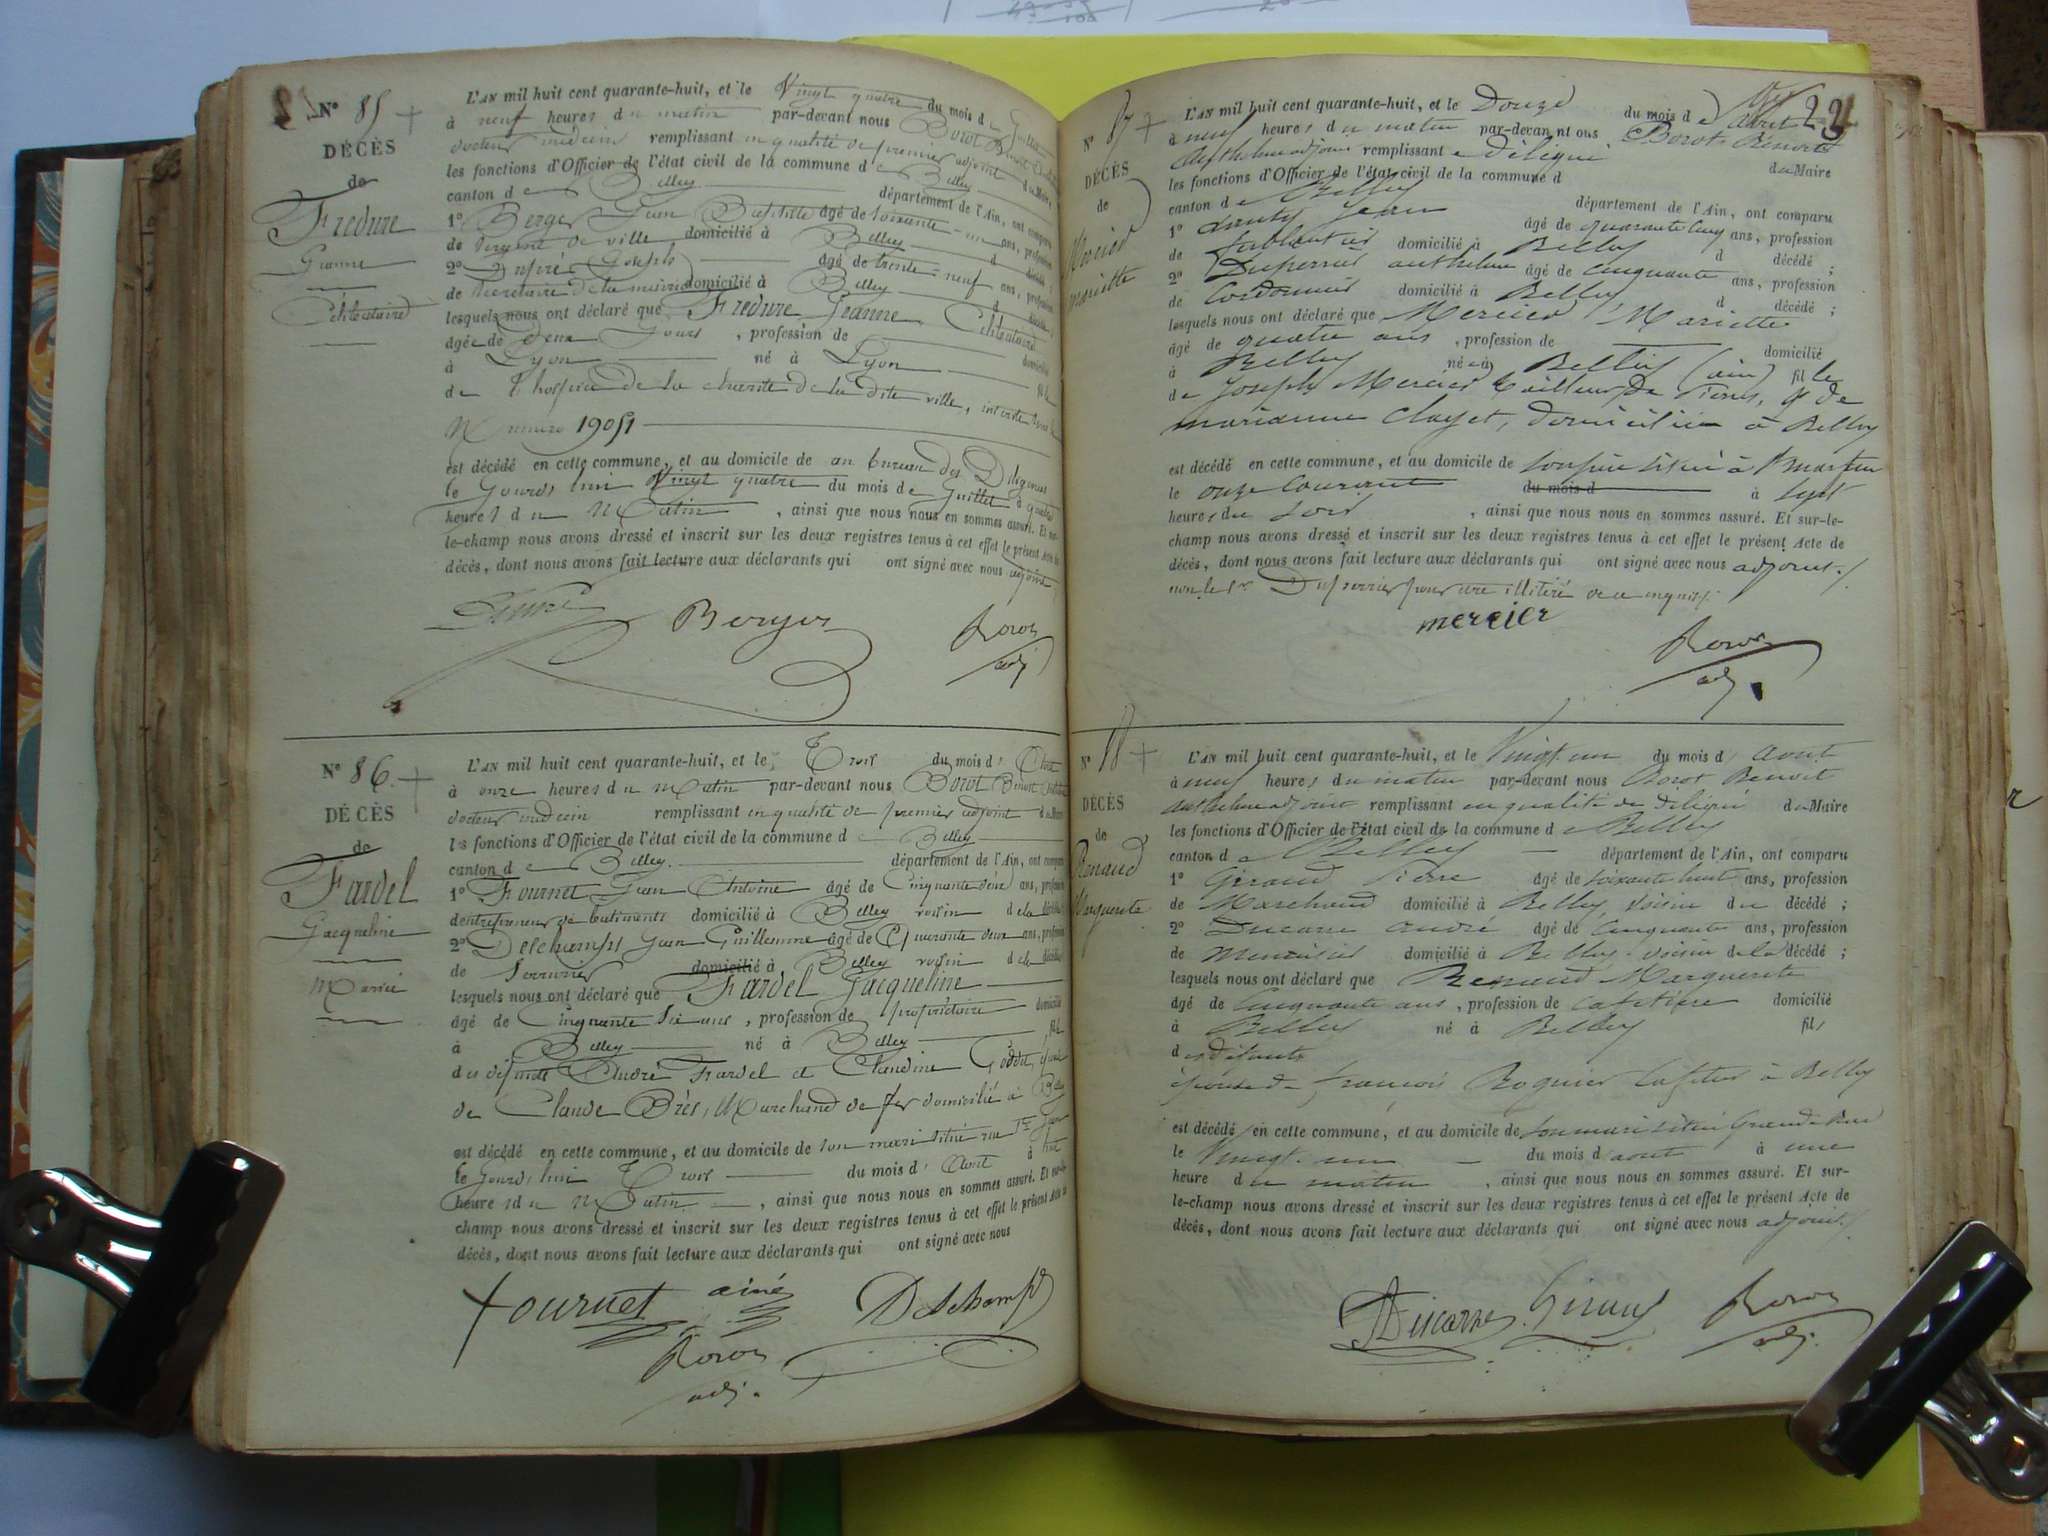 N° 85
DÉCÈS
de
Fredure
Jeanne
L'AN mil huit cent quarante-huit, et le Vingt quatre du mois de Juillet
à neuf heures du matin par-devant nous Borot Benoit
docteur médecin remplissant en qualité de premier adjoint du Maire,
les fonctions d'Officier de l'état civil de la commune de Belley
canton de Belley département de l'Ain, ont comparu
1° Berger Jean Baptiste âgé de soixante-un ans, profession
de sergent de ville domicilié à Belley d décédé ;
2° Dupré Joseph âgé de trente-neuf ans, profession
de secrétaire de la mairie domicilié à Belley d décédé ;
lesquels nous ont déclaré que Fredure Jeanne,
âgée de deux jours, profession de domicilié
à Lyon né à Lyon fil
de l'hospice de la charité de la dite ville,
Numéro 19051
est décédé en cette commune, et au domicile de au bureau des Diligences
le jourd'hui Vingt quatre du mois de Juillet à quatre
heures du Matin, ainsi que nous nous en sommes assuré. Et sur-
le-champ nous avons dressé et inscrit sur les deux registres tenus à cet effet le présent Acte de
décès, dont nous avons fait lecture aux déclarants qui ont signé avec nous adjoint
Dupré Berger Borot
adj.
N° 86.
DÉCÈS
de
Fardel
Jacqueline
Mariée
L'AN mil huit cent quarante-huit, et le Trois du mois d'Août
à onze heures du Matin par-devant nous Borot Benoit
docteur médecin remplissant en qualité de premier adjoint du Maire
les fonctions d'Officier de l'état civil de la commune de Belley
canton de Belley. département de l'Ain, ont comparu
1° Fournet Jean Antoine âgé de Cinquante deux ans, profession
d'entrepreneur de batiments domicilié à Belley voisin de la décédé
2° Deschamps Jean Guillemme âgé de Quarante deux ans, profession
de Serrurier domicilié à Belley voisin de la décédé
lesquels nous ont déclaré que Fardel Jacqueline
âgé de Cinquante six ans, profession de propriétaire domicilié
à Belley né à Belley fil
des défunts André Fardel et Claudine Goddet, épouse
de Claude Brès, Marchand de fer domicilié à Belley
est décédé en cette commune, et au domicile de son mari situé rue
le jourd'hui Trois du mois d'Août à
heures du Matin, ainsi que nous nous en sommes assuré. Et sur-le-
champ nous avons dressé et inscrit sur les deux registres tenus à cet effet le présent Acte de
décès, dont nous avons fait lecture aux déclarants qui ont signé avec nous
Fournet ainé Deschamps
Borot
adj.
23
N° 87
DÉCÈS
de
Mercier
Mariette
L'AN mil huit cent quarante-huit, et le Douze du mois d Août
à neuf heures du matin par-devant nous Borot Benoit
Anthelme adjoint remplissant délégué du Maire
les fonctions d'Officier de l'état civil de la commune d
canton de Belley département de l'Ain, ont comparu
1° Jean âgé de quarante cinq ans, profession
de ferblantier domicilié à Belley d décédé ;
2° Duperrier anthelme âgé de cinquante ans, profession
de Cordonnier domicilié à Belley d décédé ;
lesquels nous ont déclaré que Mercier Mariette
âgé de quatre ans, profession de domicilié
à Belley né à Belley (ain) fille
de Joseph Mercier tailleur de pierres, et de
marianne Clayet, domiciliés à Belley
est décédé en cette commune, et au domicile de son père situé à St martin
le onze Courant du mois d à sept
heures du soir, ainsi que nous nous en sommes assuré. Et sur-le-
champ nous avons dressé et inscrit sur les deux registres tenus à cet effet le présent Acte de
décès, dont nous avons fait lecture aux déclarants qui ont signé avec nous adjoint./.
non le Sr Duperrier pour être illitéré de ce enquis./.
mercier
Borot
adj.
N° 88
DÉCÈS
de
Renaud
Marguerite
L'AN mil huit cent quarante-huit, et le Vingt un du mois d'août
à neuf heures du matin par-devant nous Borot Benoit
Anthelme adjoint remplissant en qualité de délégué du Maire
les fonctions d'Officier de l'état civil de la commune de Belley
canton de Belley département de l'Ain, ont comparu
1° Giraud Pierre âgé de soixante huit ans, profession
de Marchand domicilié à Belley, voisin du décédé ;
2° Ducarre André âgé de Cinquante ans, profession
de Menuisier domicilié à Belley voisin de la décédé ;
lesquels nous ont déclaré que Renaud Marguerite
âgé de Cinquante ans, profession de Cafetière domicilié
à Belley né à Belley fil
des défunts
épouse de françois Roguier Cafetier à Belley
est décédé en cette commune, et au domicile de son mari situé Grande Rue
le Vingt-un du mois d'août à une
heure du matin, ainsi que nous nous en sommes assuré. Et sur-
le-champ nous avons dressé et inscrit sur les deux registres tenus à cet effet le présent Acte de
décès, dont nous avons fait lecture aux déclarants qui ont signé avec nous adjoint./.
Ducarre Giraud Borot
adj.